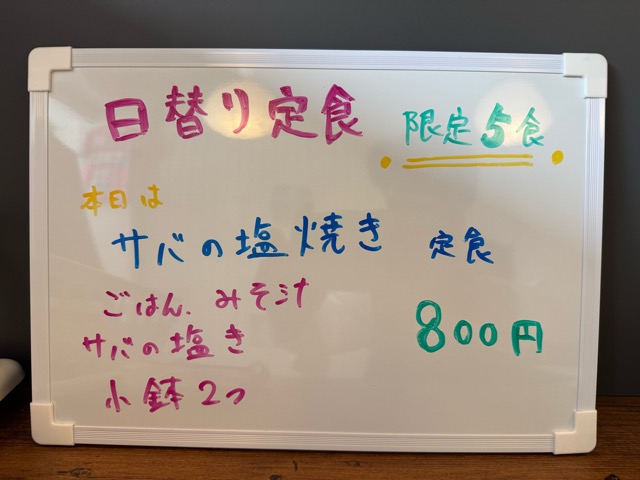 日替り定食 限定5食
本日は
サバの塩焼き 定食
ごはん、みそ汁
サバの塩き
小鉢2つ
800円